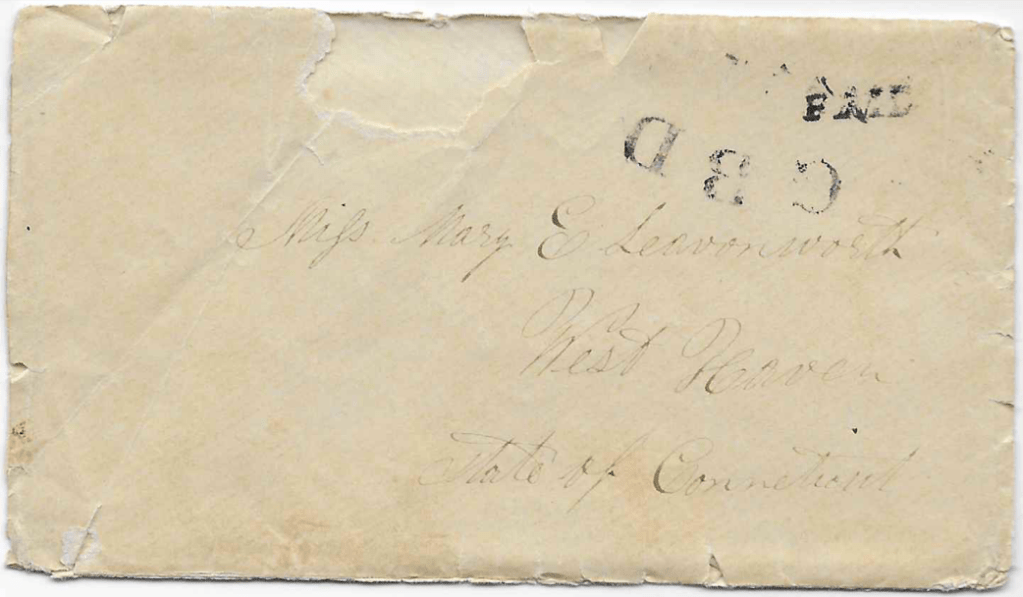 PAID
G B D
Miss Mary E Leavonworth
West Haven
State of Connecticut